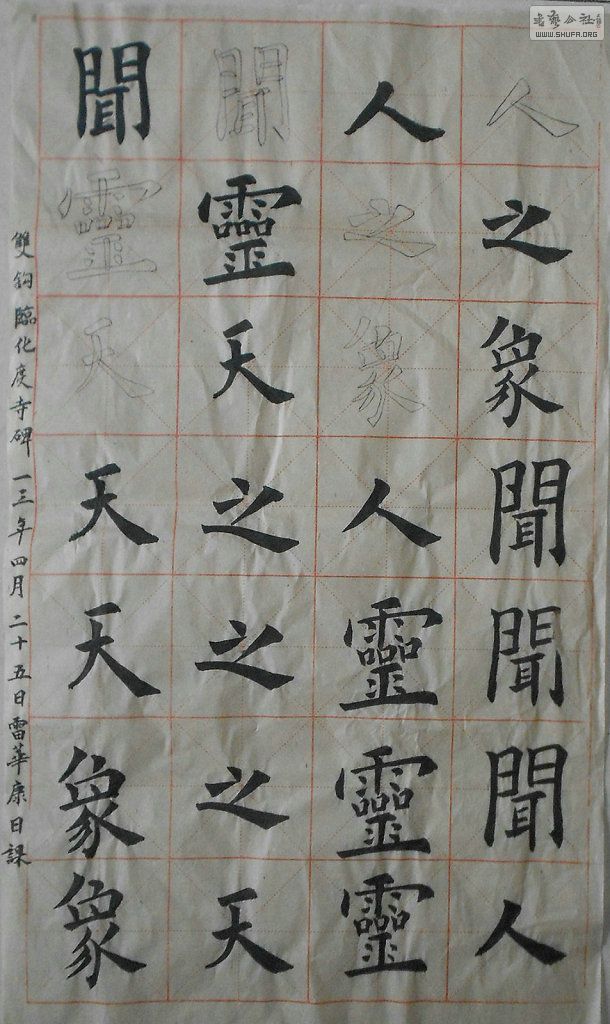 人之象聞聞聞人
人之象人靈靈靈
聞靈天之之之天
聞靈天天天象象
雙鈎臨化度寺碑 一三年四月二十五日雷華康日課
WWW.SHUFA.ORG